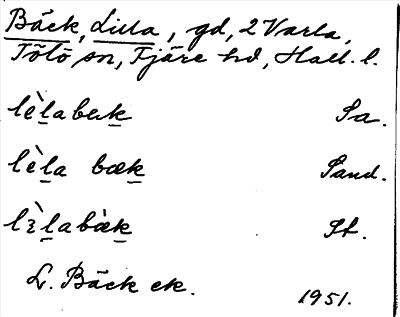 Bäck, Lilla, gd, 2 Varla,
Tölö sn, Fjäre hd, Hall. l.
lèlabæk Sa.
lèla bæk Sand.
lɛ̀labæ̀k St.
L. Bäck ek.
1951.